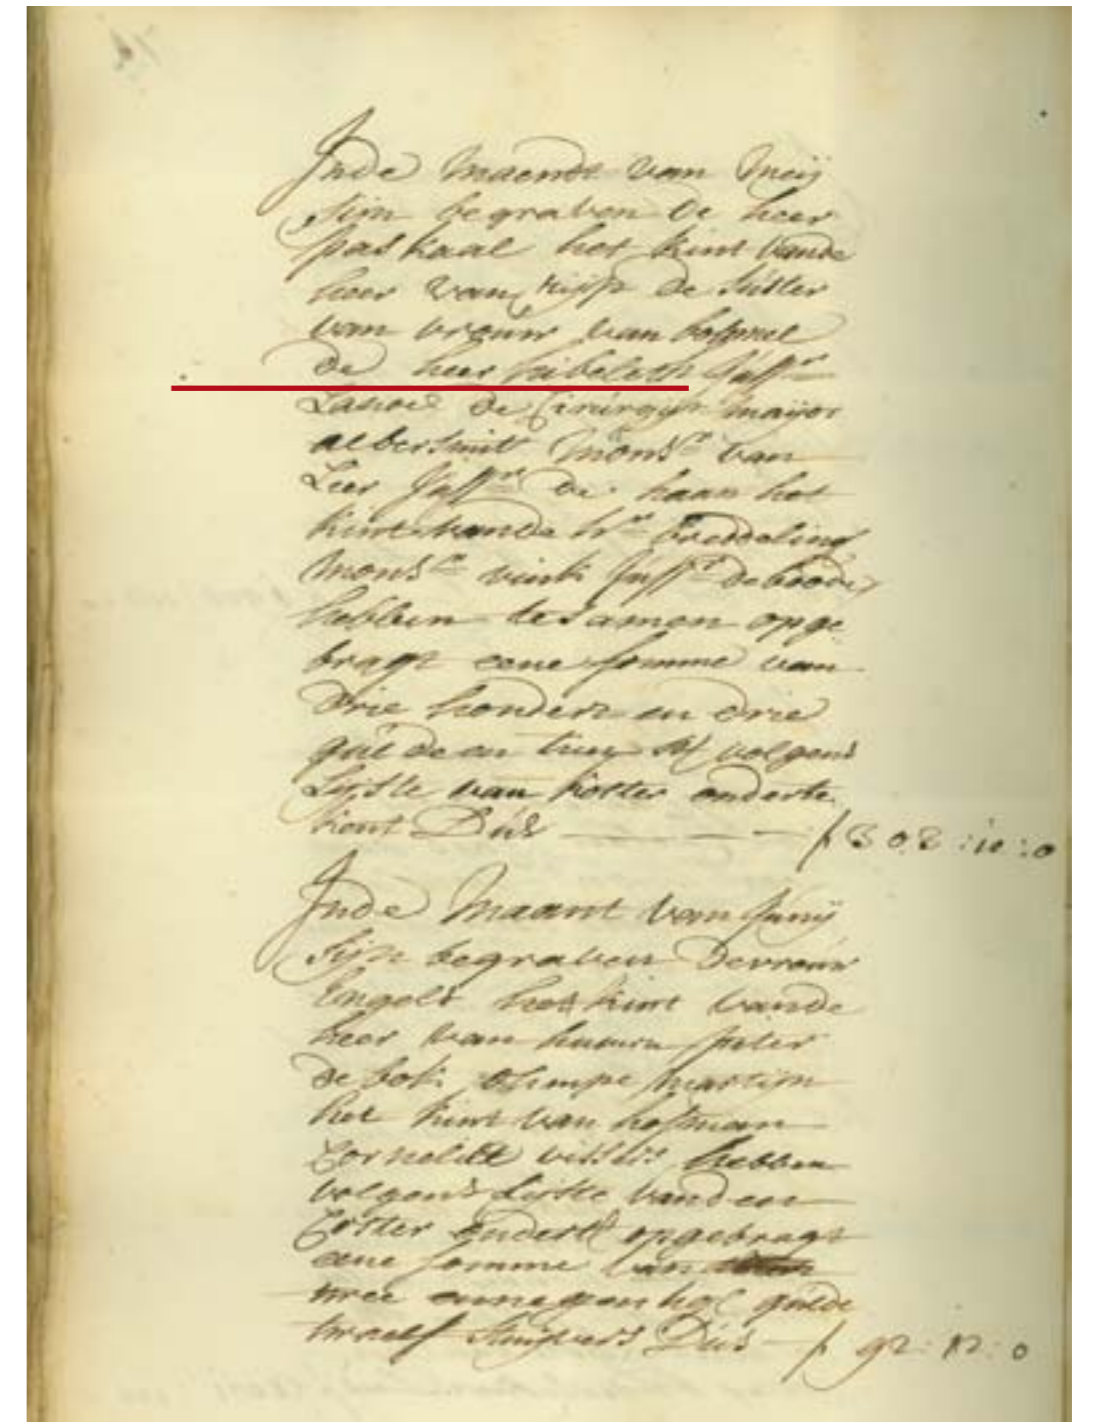 Inde Maendt van Meij
sijn begraven de heer
paskaal het kint vande
heer van rijp de suster
van vrouw van bommel
de heer sibeleth Juffr
de Cirurgijn mayor
albersmit Monsr van
Leer Juffr de haan het
kint vande hr breddeling
Monsr vink Juffr de boode
hebben te samen opge
bragt eene somme van
drie hondert en drie
gulde en volgens
Lijste van koster onderte
kent Dus f 303 : 10 : 0
Inde Maant van Junij
Sijn begraven De vrouw
Engels het kint vande
heer van peter
de bok olimpe martijn
het kint van hofman
Cornelis vissers hebben
volgens Lijste vanden
Coster ondertt opgebragt
eene somme van
twee ennegentig gulde
twaelf stuijvers Dus f 92 : 12 : 0